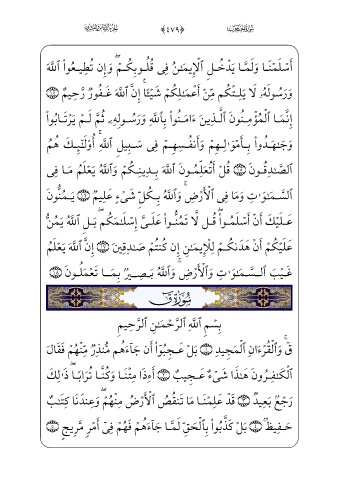 ﴿٤٧٩﴾
أَسْلَمْنَا وَلَمَّا يَدْخُلِ الْإِيمَـٰنُ فِى قُلُوبِكُمْ ۖ وَإِن تُطِيعُوا۟ اللَّهَ
وَرَسُولَهُۥ لَا يَلِتْكُم مِّنْ أَعْمَـٰلِكُمْ شَيْـًٔا ۚ إِنَّ اللَّهَ غَفُورٌ رَّحِيمٌ
إِنَّمَا الْمُؤْمِنُونَ الَّذِينَ ءَامَنُوا۟ بِاللَّهِ وَرَسُولِهِۦ ثُمَّ لَمْ يَرْتَابُوا۟
وَجَـٰهَدُوا۟ بِأَمْوَٰلِهِمْ وَأَنفُسِهِمْ فِى سَبِيلِ اللَّهِ ۚ أُو۟لَـٰٓئِكَ هُمُ
الصَّـٰدِقُونَ قُلْ أَتُعَلِّمُونَ اللَّهَ بِدِينِكُمْ وَاللَّهُ يَعْلَمُ مَا فِى
السَّمَـٰوَٰتِ وَمَا فِى الْأَرْضِ ۚ وَاللَّهُ بِكُلِّ شَىْءٍ عَلِيمٌ يَمُنُّونَ
عَلَيْكَ أَنْ أَسْلَمُوا۟ ۖ قُل لَّا تَمُنُّوا۟ عَلَىَّ إِسْلَـٰمَكُم ۖ بَلِ اللَّهُ يَمُنُّ
عَلَيْكُمْ أَنْ هَدَىٰكُمْ لِلْإِيمَـٰنِ إِن كُنتُمْ صَـٰدِقِينَ إِنَّ اللَّهَ يَعْلَمُ
غَيْبَ السَّمَـٰوَٰتِ وَالْأَرْضِ ۚ وَاللَّهُ بَصِيرٌۢ بِمَا تَعْمَلُونَ
سُورَةُ ق
بِسْمِ اللَّهِ الرَّحْمَـٰنِ الرَّحِيمِ
قٓ ۚ وَالْقُرْءَانِ الْمَجِيدِ بَلْ عَجِبُوٓا۟ أَن جَآءَهُم مُّنذِرٌ مِّنْهُمْ فَقَالَ
الْكَـٰفِرُونَ هَـٰذَا شَىْءٌ عَجِيبٌ أَءِذَا مِتْنَا وَكُنَّا تُرَابًا ۖ ذَٰلِكَ
رَجْعٌۢ بَعِيدٌ قَدْ عَلِمْنَا مَا تَنقُصُ الْأَرْضُ مِنْهُمْ ۖ وَعِندَنَا كِتَـٰبٌ
حَفِيظٌۢ بَلْ كَذَّبُوا۟ بِالْحَقِّ لَمَّا جَآءَهُمْ فَهُمْ فِىٓ أَمْرٍ مَّرِيجٍ